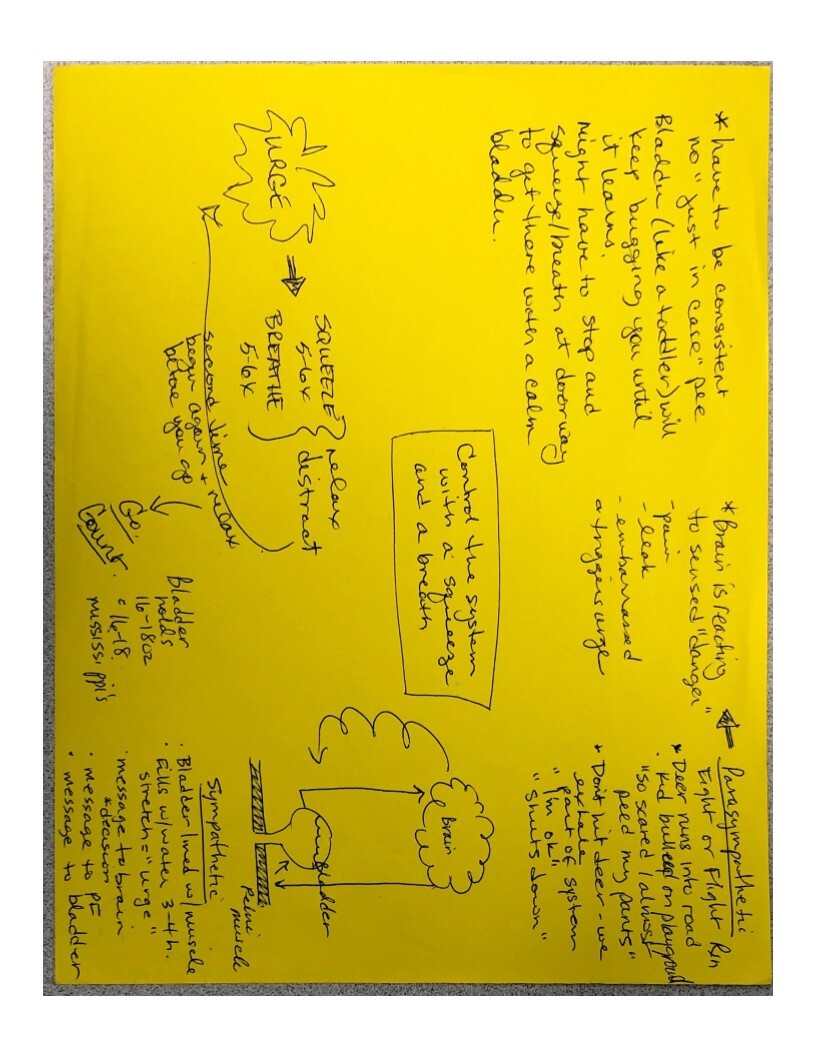 * have to be consistent
no "just in case" pee
Bladder (like a toddler) will
keep bugging you until
it learns.
Might have to stop and
squeeze/breath at doorway
to get there with a calm
bladder.
* Brain is reacting
to sensed "danger"
- pain
- leak
- embarrassed
triggers urge
Parasympathetic
Fight or Flight Rxn
* Deer runs into road
· kid bullied on playground
"so scared I almost
peed my pants"
* Don't hit deer - we
exhale
part of system
"I'm ok"
"shuts down"
Control the system
with a squeeze
and a breath
URGE
SQUEEZE
5-6x
BREATHE
5-6x
relax
distract
second time
begin again + relax
before you go
Go.
Count.
Bladder
holds
16-18oz
= 16-18
mississippi's
Brain
Bladder
Pelvic
muscle
Sympathetic
· Bladder lined w/ muscle
· Fills w/ water 3-4h.
stretch = "urge"
· message to brain
* decision
· message to PF
· message to bladder